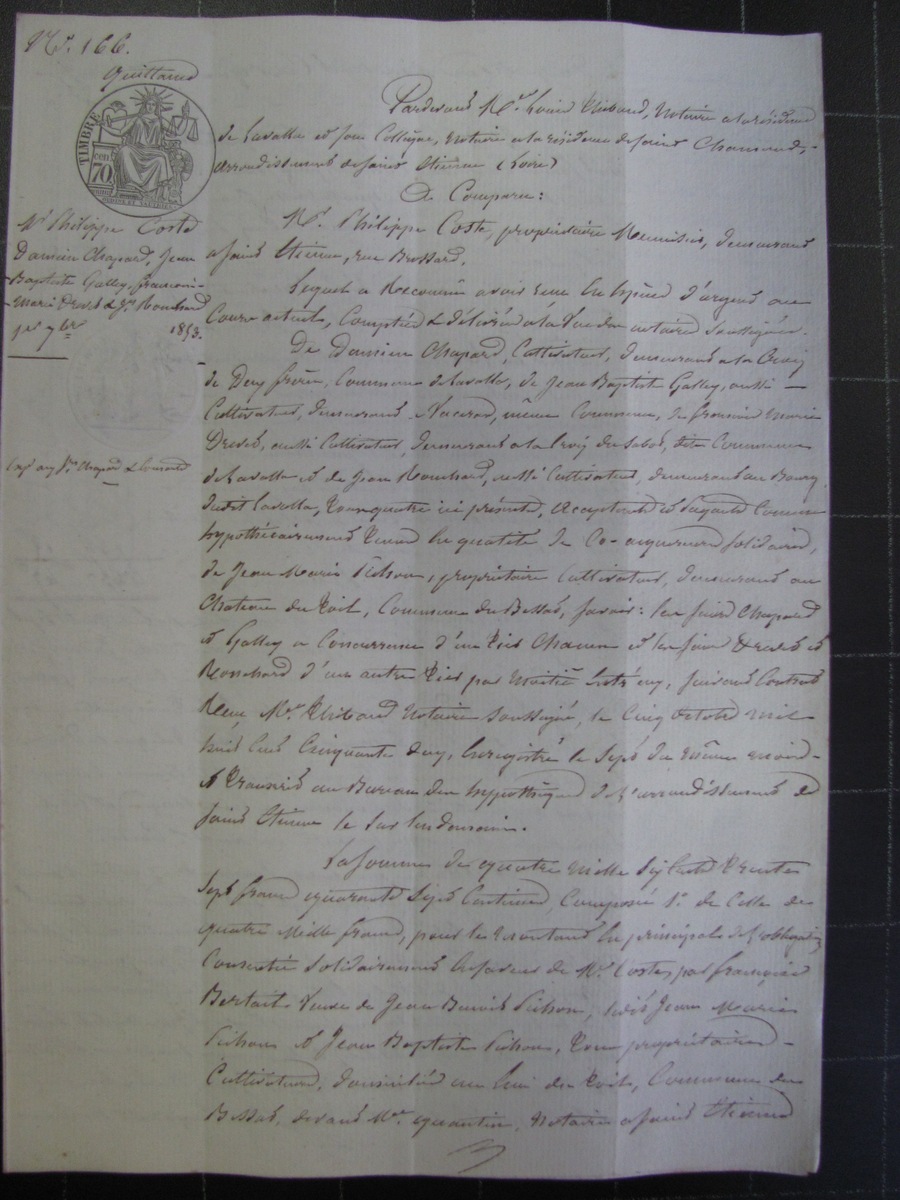 N°. 166.
Quittance
TIMBRE
70
Mr Philippe Coste
Damien Chapard, Jean
Baptiste Galley, francois-
Marie Drevet & Jn Ronchard
pr 7bre 1853.
Pardevant Me Louis Thibaud, Notaire a la résidence
de Lavalla et son Collègue, Notaire a la résidence de saint Chamond,
arrondissement de saint Etienne (Loire)
A Comparu :
Mr Philippe Coste, propriétaire Rentier, demeurant
a saint Etienne, rue Brossard.
Lequel a Reconnu avoir reçu En Espèces d'argent au
Cours actuel, Comptées & délivrées a la Vue des notaires soussignés.
De Damien Chapard, Cultivateur, demeurant a la Croix
de Deux frères, Commune de Lavalla, de Jean Baptiste Galley, aussi
Cultivateur, demeurant même Commune, de francois Marie
Drevet, aussi Cultivateur, demeurant a la Croix du Sabot, dite Commune
de Lavalla et de Jean Ronchard, aussi Cultivateur, demeurant au Bourg
dudit Lavalla, tous quatre ici présents, acceptants et payants Comme
hypothécairement tenus En qualité de Co-acquéreurs solidaires,
de Jean Marie Pichon, propriétaire Cultivateur, demeurant au
Chateau du Toil, Commune du Bessat, savoir : les sieurs Chapard
et Galley a Concurrence d'un tiers Chacun et les sieurs Drevet et
Ronchard d'un autre tiers par moitié Entr'eux, suivant Contrat
Reçu Me Thibaud Notaire soussigné, le Cinq octobre mil
huit Cent Cinquante deux, Enregistré le sept du même mois
& transcrit au Bureau des hypothèques de l'arrondissement de
saint Etienne le sur lendemain.
La somme de quatre mille six Cents trente
sept francs quarante sept Centimes, Composée 1° de Celle de
quatre Mille francs, pour le montant En principal de l'obligation
Consentie solidairement En faveur de Mr Coste, par françoise
Bertail Veuve de Jean Benoit Pichon, Jean Marie
Pichon et Jean Baptiste Pichon, tous propriétaires
Cultivateurs, domiciliés au lieu du Toil, Commune du
Bessat, devant Me quantin, Notaire a saint Etienne